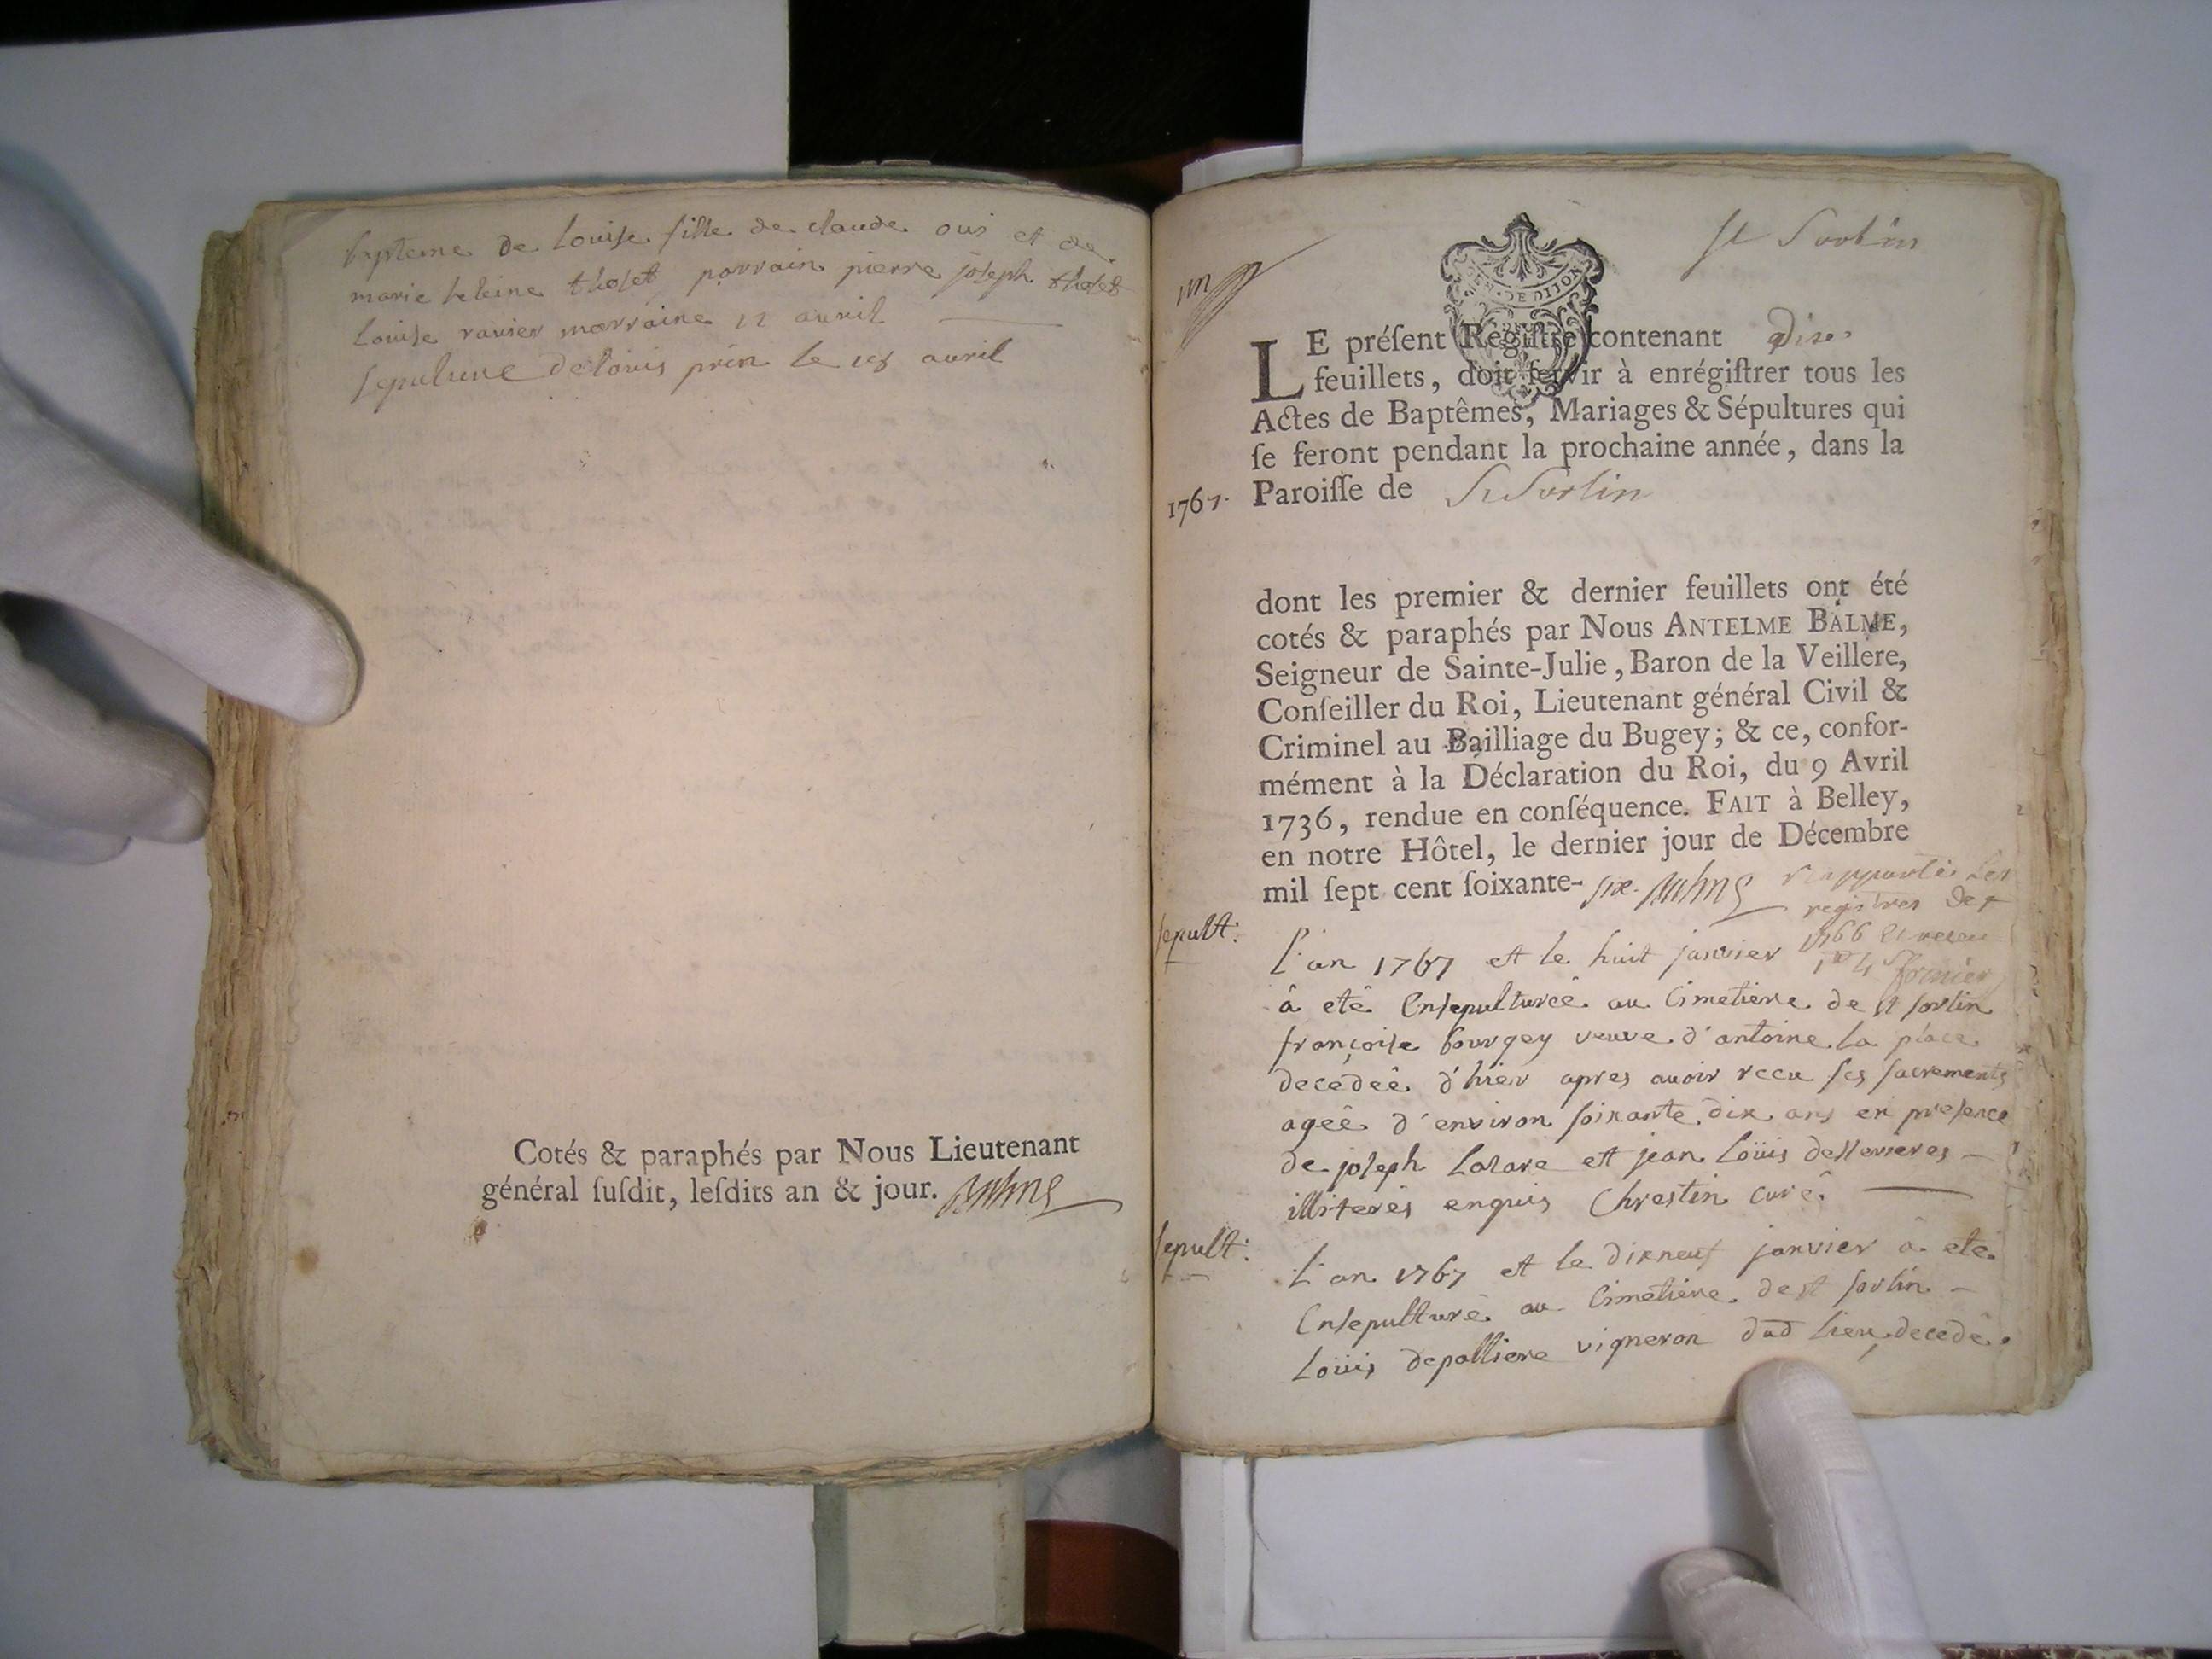 bapteme de Louise fille de claude ouis et de
marie heleine tholet parrain pierre joseph tholet
Louise ravier marraine 12 avril
sepulture de louis prin le 18 avril
Cotés & paraphés par Nous Lieutenant
général ſuſdit, leſdits an & jour. Balme
St Sorlin
un
GEN. DE DIJON
LE préſent Régiſtre contenant dix
feuillets, doit ſervir à enrégiſtrer tous les
Actes de Baptêmes, Mariages & Sépultures qui
ſe feront pendant la prochaine année, dans la
1767. Paroiſſe de St Sorlin
dont les premier & dernier feuillets ont été
cotés & paraphés par Nous ANTELME BALME,
Seigneur de Sainte-Julie, Baron de la Veillere,
Conſeiller du Roi, Lieutenant général Civil &
Criminel au Bailliage du Bugey; & ce, confor-
mément à la Déclaration du Roi, du 9 Avril
1736, rendue en conſéquence. FAIT à Belley,
en notre Hôtel, le dernier jour de Décembre
mil ſept cent ſoixante- six. Balme rapporté les
registres de
1766
sepult:
L'an 1767 et le huit janvier
à eté Ensepulturcé au Cimetiere de st sorlin
françoise bourgey veuve d'antoine la place
decedeé d'hier apres avoir recu ses sacrements
ageé d'environ soixante dix ans en presence
de joseph Lazare et jean Loüis desserieres
illiterés enquis Chrestin curé.
sepult:
L'an 1767 et le dixneuf janvier à eté
Ensepulturé au Cimetiere de st sorlin
Loüis depalliere vigneron dud lieu, decedé